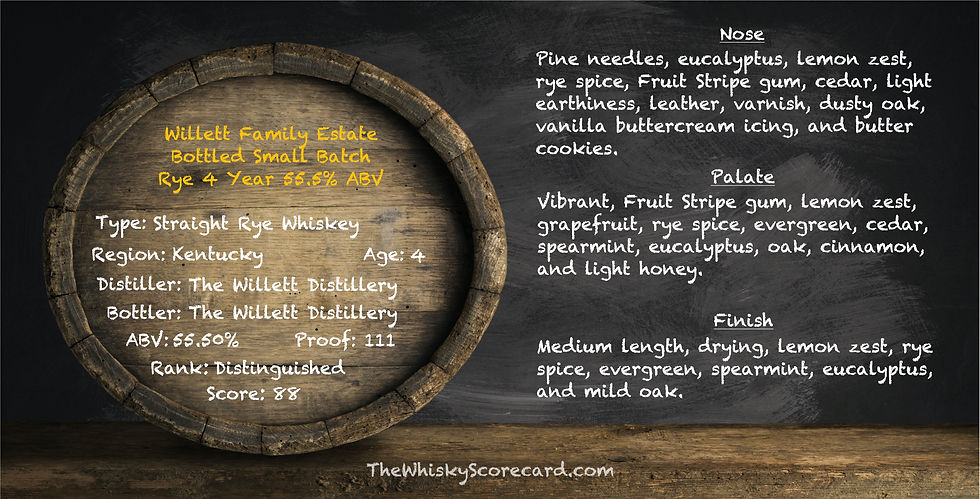 Willett Family Estate
Bottled Small Batch
Rye 4 Year 55.5% ABV
Type: Straight Rye Whiskey
Region: Kentucky Age: 4
Distiller: The Willett Distillery
Bottler: The Willett Distillery
ABV: 55.50% Proof: 111
Rank: Distinguished
Score: 88
Nose
Pine needles, eucalyptus, lemon zest,
rye spice, Fruit Stripe gum, cedar, light
earthiness, leather, varnish, dusty oak,
vanilla buttercream icing, and butter
cookies.
Palate
Vibrant, Fruit Stripe gum, lemon zest,
grapefruit, rye spice, evergreen, cedar,
spearmint, eucalyptus, oak, cinnamon,
and light honey.
Finish
Medium length, drying, lemon zest, rye
spice, evergreen, spearmint, eucalyptus,
and mild oak.
TheWhiskyScorecard.com